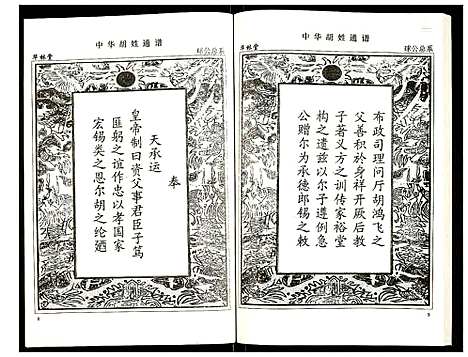 中华胡姓通谱
华林堂
奉
天承运
皇帝制曰资父事君臣子笃
匪躬之谊作忠以孝国家
宏锡类之恩尔胡之纶廼
8
中华胡姓通谱
球公总系
布政司理问厅胡鸿飞之
父善积於身祥开厥后教
子著义方之训传家裕堂
构之遗兹以尔子遵例急
公赠尔为承德郎锡之敕
9